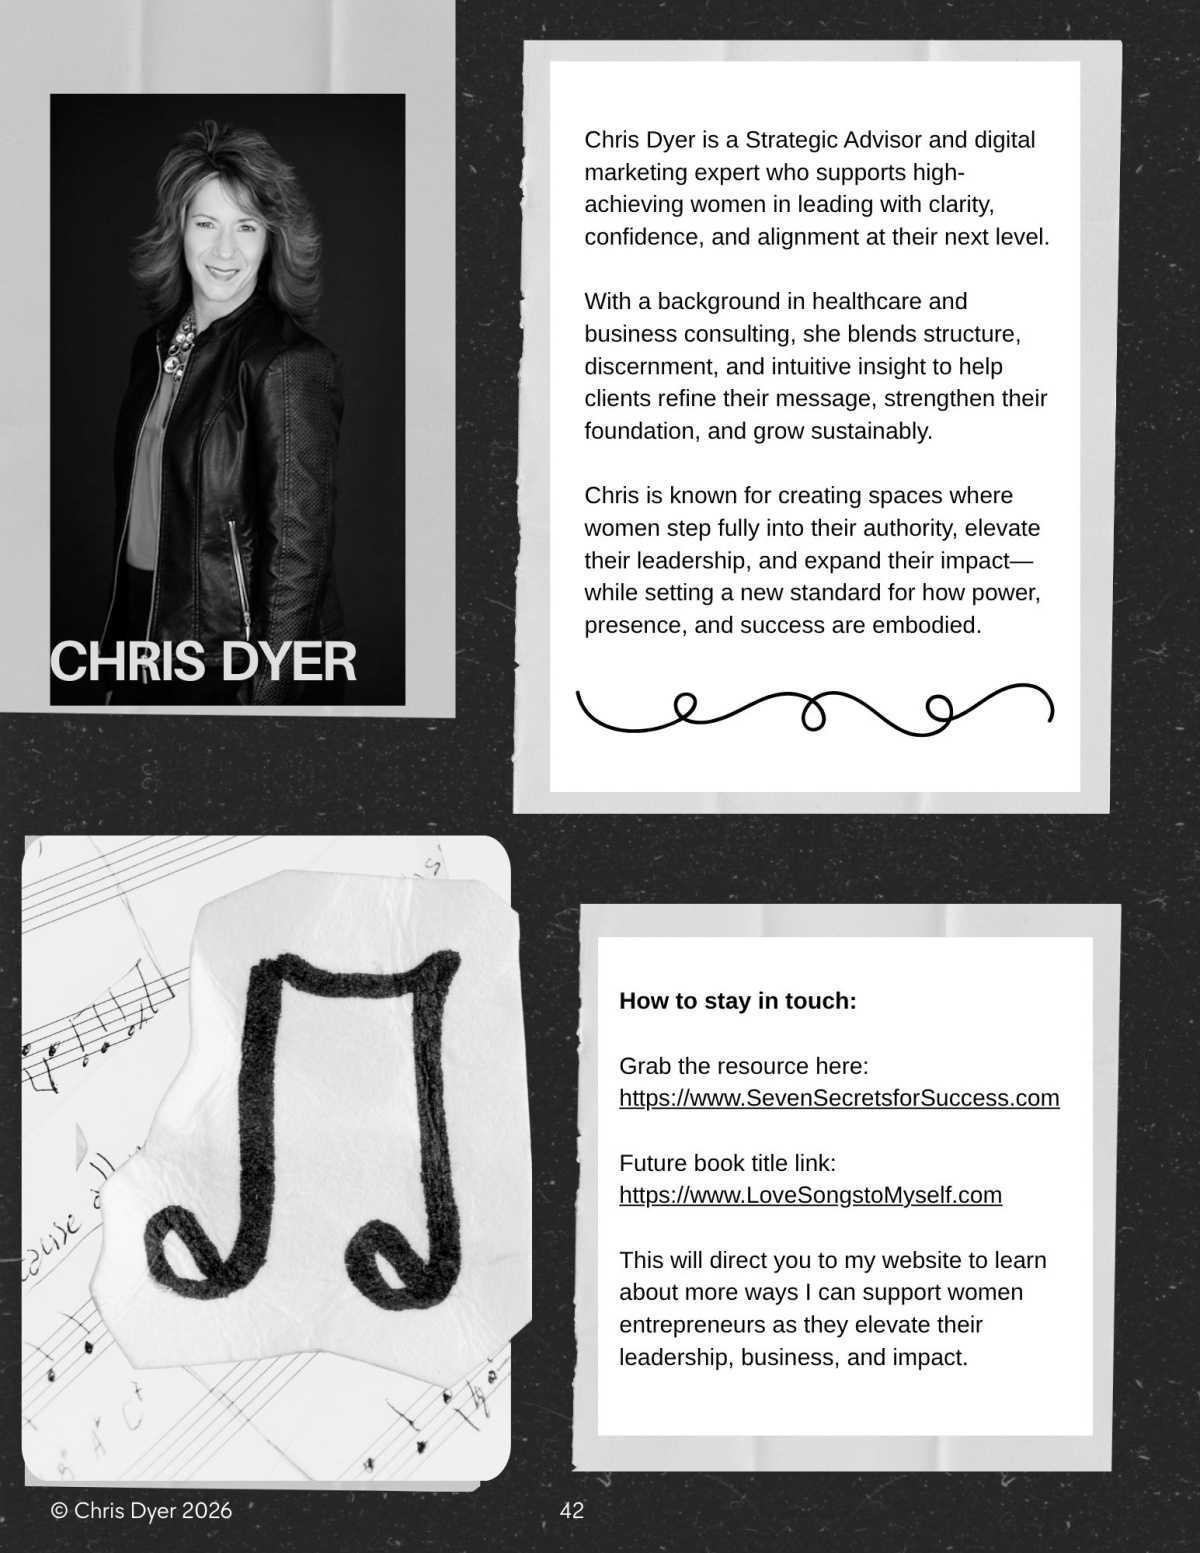 CHRIS DYER
Chris Dyer is a Strategic Advisor and digital
marketing expert who supports high-
achieving women in leading with clarity,
confidence, and alignment at their next level.
With a background in healthcare and
business consulting, she blends structure,
discernment, and intuitive insight to help
clients refine their message, strengthen their
foundation, and grow sustainably.
Chris is known for creating spaces where
women step fully into their authority, elevate
their leadership, and expand their impact—
while setting a new standard for how power,
presence, and success are embodied.
How to stay in touch:
Grab the resource here:
https://www.SevenSecretsforSuccess.com
Future book title link:
https://www.LoveSongstoMyself.com
This will direct you to my website to learn
about more ways I can support women
entrepreneurs as they elevate their
leadership, business, and impact.
© Chris Dyer 2026
42